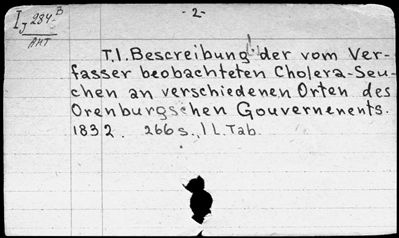 I J 234-B
АНТ
-2-
T.I. Bescreibung der vom Ver-
fasser beobachteten Cholera-Seu-
chen an verschiedenen Orten des
Orenburgschen Gouvernenents.
1832. 266 s., 1 L. Tab.